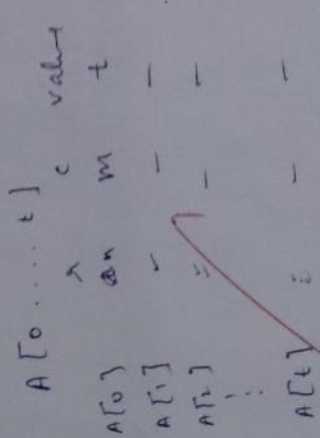 A[0.....t]
r c value
A[0] n m t
A[1] — —
A[2] — —
⋮
A[t] — —